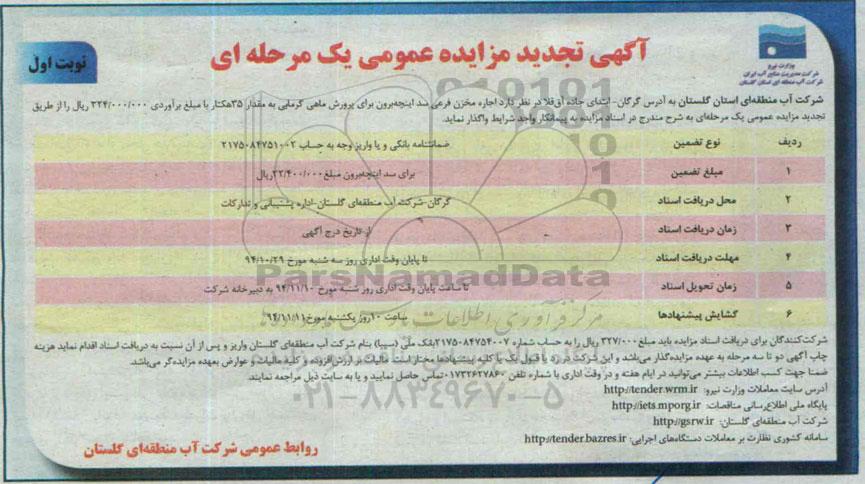 آگهی تجدید مزایده عمومی یک مرحله ای
نوبت اول
وزارت نیرو
شرکت مدیریت منابع آب ایران
شرکت آب منطقه ای استان گلستان
شرکت آب منطقه‌ای استان گلستان به آدرس گرگان- ابتدای جاده آق‌قلا در نظر دارد اجاره مخزن فرعی سد اینچه‌برون برای پرورش ماهی گرمابی به مقدار ۳۵هکتار با مبلغ برآوردی ۲۲۴/۰۰۰/۰۰۰ ریال را از طریق
تجدید مزایده عمومی یک مرحله‌ای به شرح مندرج در اسناد مزایده به پیمانکار واجد شرایط واگذار نماید.
ردیف نوع تضمین ضمانتنامه بانکی و یا واریز وجه به حساب ۲۱۷۵۰۸۴۷۵۱۰۰۲
۱ مبلغ تضمین برای سد اینچه‌برون مبلغ ۲۲/۴۰۰/۰۰۰ریال
۲ محل دریافت اسناد گرگان-شرکت آب منطقه‌ای گلستان-اداره پشتیبانی و تدارکات
۳ زمان دریافت اسناد از تاریخ درج آگهی
۴ مهلت دریافت اسناد تا پایان وقت اداری روز سه شنبه مورخ ۹۴/۱۰/۲۹
۵ زمان تحویل اسناد تا ساعت پایان وقت اداری روز شنبه مورخ ۹۴/۱۱/۱۰ به دبیرخانه شرکت
۶ گشایش پیشنهادها ساعت ۱۰روز یکشنبه مورخ ۹۴/۱۱/۱۱
ParsNamadData
شرکت‌کنندگان برای دریافت اسناد مزایده باید مبلغ ۳۲۷/۰۰۰ ریال را به حساب شماره ۲۱۷۵۰۸۴۷۵۴۰۰۷بانک ملی (سیبا) بنام شرکت آب منطقه‌ای گلستان واریز و پس از آن نسبت به دریافت اسناد اقدام نماید هزینه
چاپ آگهی دو تا سه مرحله به عهده مزایده‌گذار می‌باشد و این شرکت در رد یا قبول یک یا کلیه پیشنهادها مختار است مالیات بر ارزش‌افزوده و کلیه مالیات و عوارض بعهده مزایده‌گر می‌باشد.
ضمنا جهت کسب اطلاعات بیشتر می‌توانید در ایام هفته و در وقت اداری با شماره تلفن ۰۱۷۳۲۶۲۷۸۶۰تماس حاصل نمایید و یا به سایت ذیل مراجعه نمایند.
۰۲۱-۸۸۳۴۹۶۷۰-۵
آدرس سایت معاملات وزارت نیرو: http://tender.wrm.ir
پایگاه ملی اطلاع‌رسانی مناقصات: http://iets.mporg.ir
شرکت آب منطقه‌ای گلستان: http://gsrw.ir
سامانه کشوری نظارت بر معاملات دستگاه‌های اجرایی: http://tender.bazres.ir
روابط عمومی شرکت آب منطقه‌ای گلستان